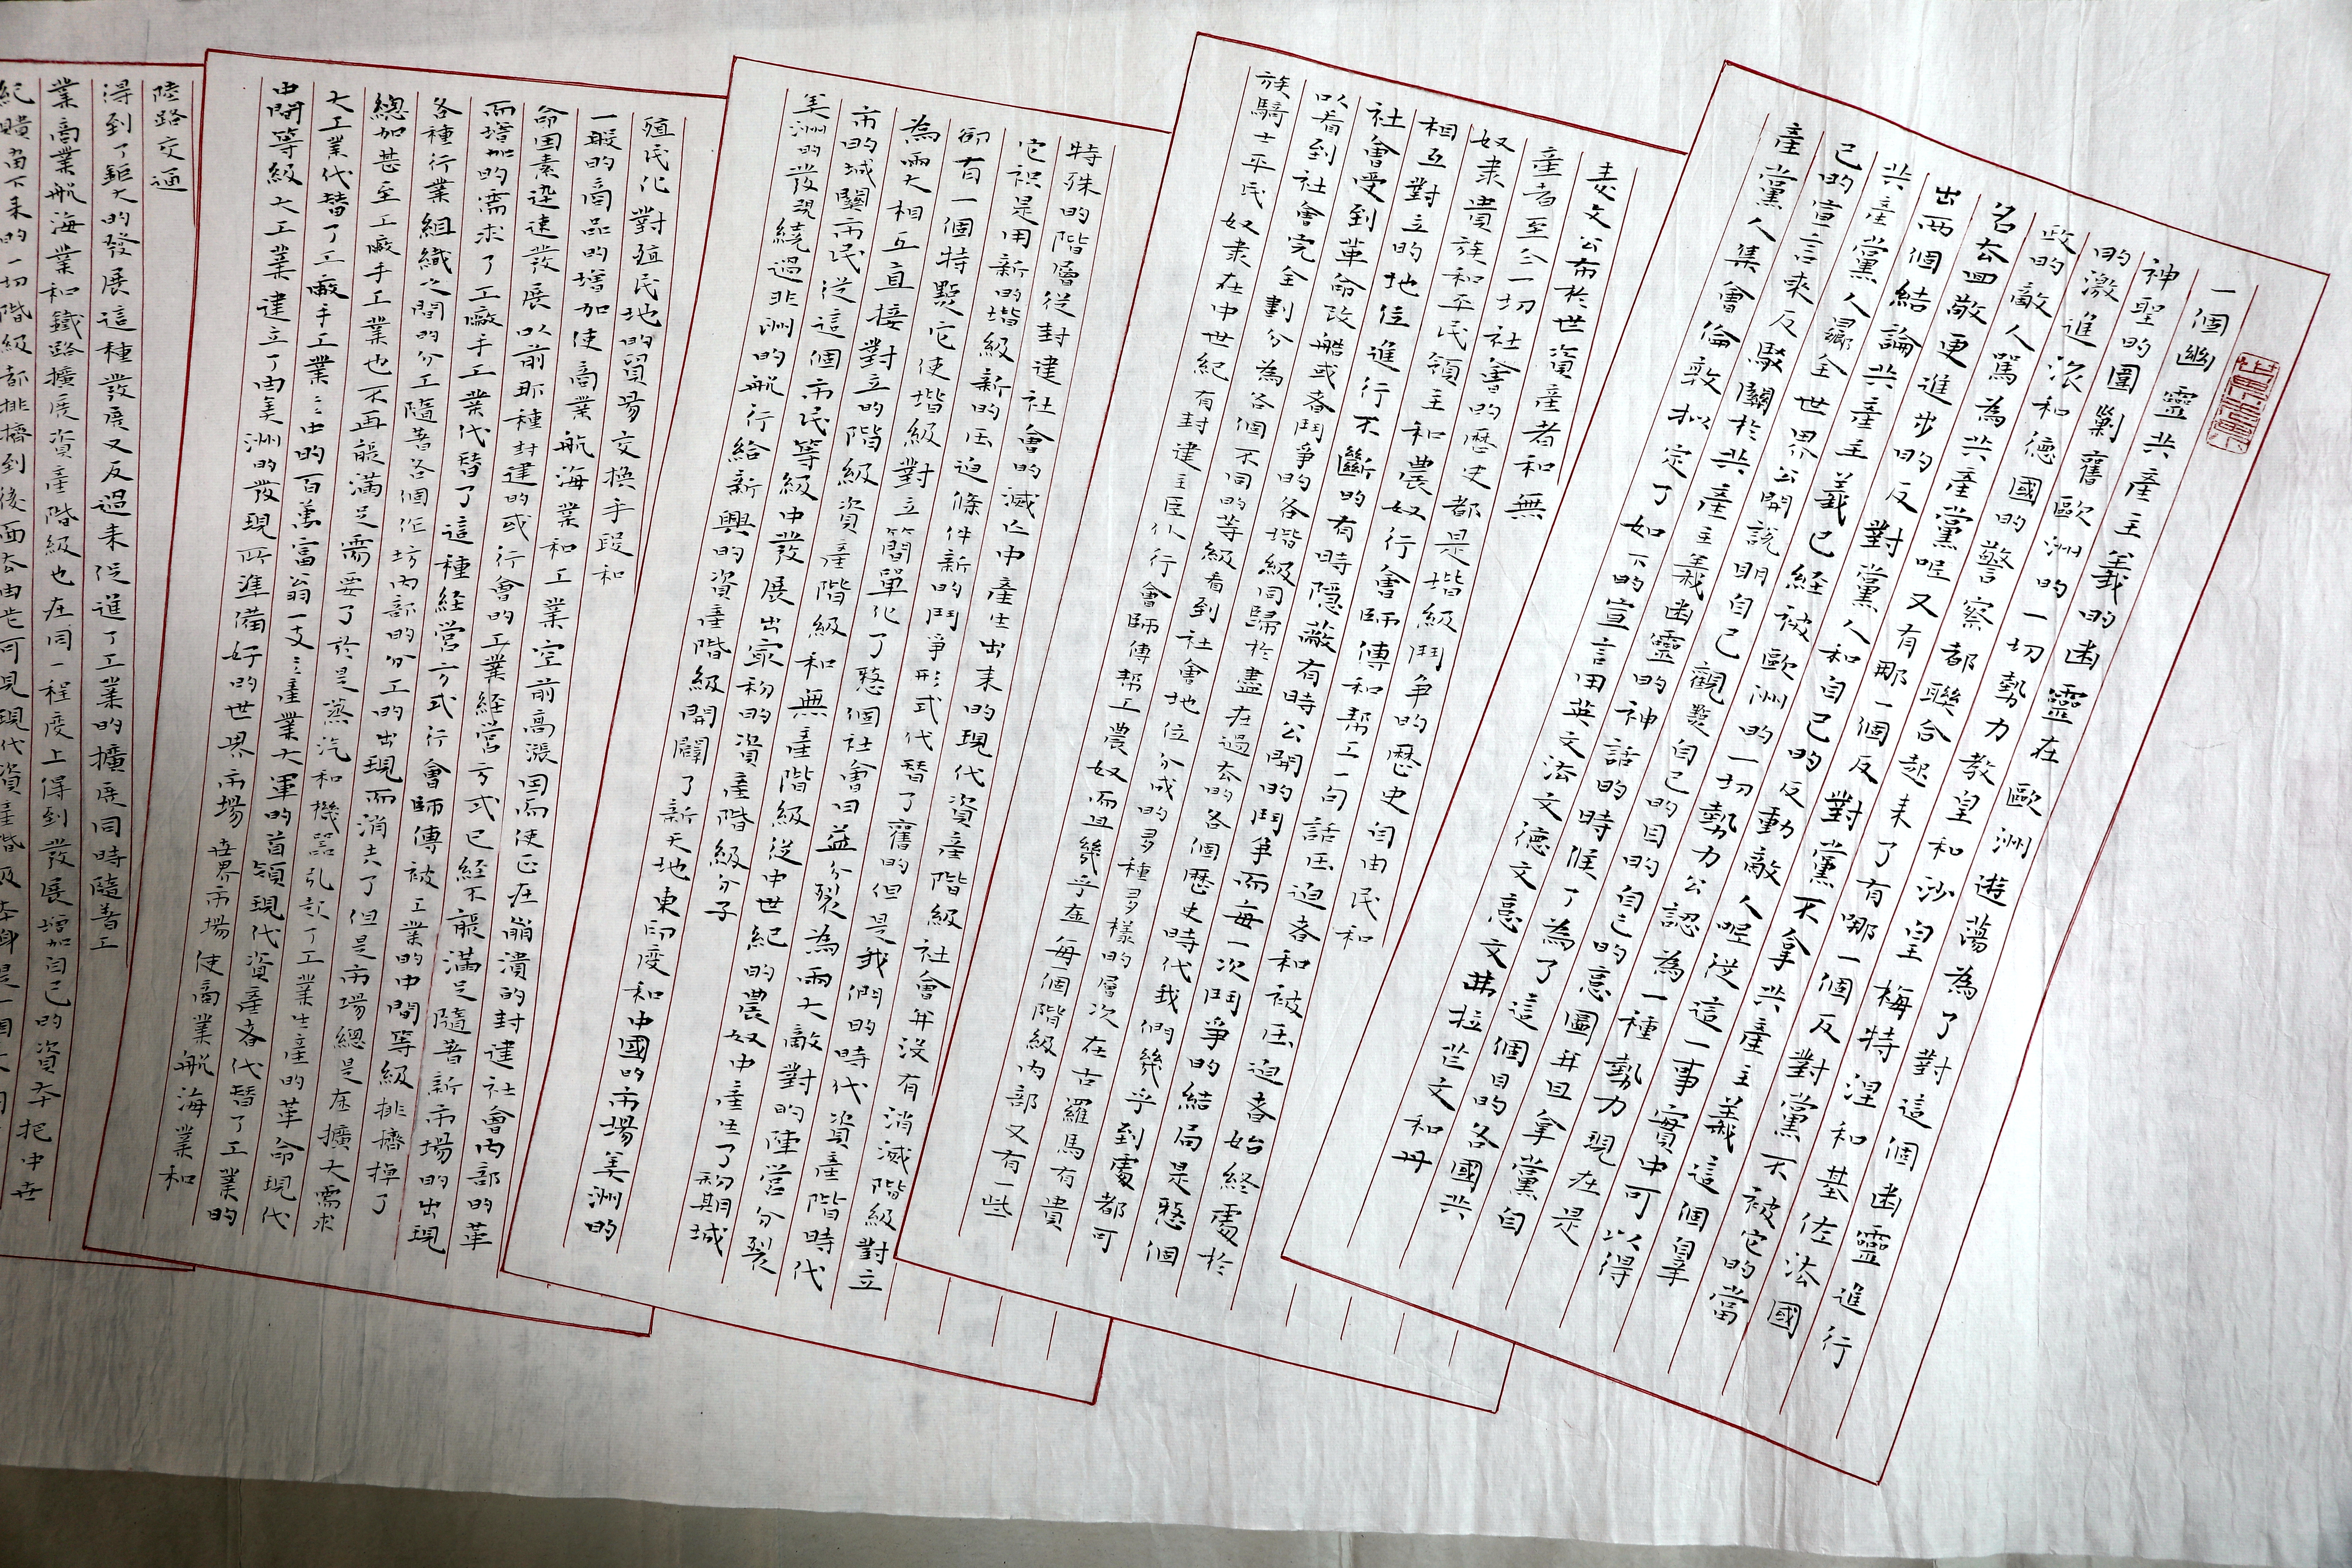 一個幽靈共產主義的幽靈在歐洲遊蕩為了對這個幽靈進行
神聖的圍剿舊歐洲的一切勢力教皇和沙皇梅特涅和基佐法國
的激進派和德國的警察都聯合起来了有哪一個反對黨不被它的當
政的敵人罵為共產黨呢又有那一個反對黨不拿共產主義這個罪
名去回敵更進步的反對黨人和自己的反動敵人呢從這一事實中可以得
出兩個結論共產主義已経被歐洲的一切勢力公認為一種勢力現在是
共產黨人曏全世界公開説明自己觀點自己的目的自己的意圖并且拿黨自
己的宣言來反駁關於共產主義幽靈的神話的時候了為了這個目的各國共
產黨人集會倫敦擬定了如下的宣言用英文法文德文意文弗拉芒文和丹
麦文公布於世資產者和無
產者至今一切社會的歷史都是堦級鬥争的歷史自由民和
奴隶貴族和平民領主和農奴行會師傅和帮工一句話压迫者和被压迫者始終處於
相互對立的地位進行不斷的有時隐蔽有時公開的鬥争而每一次鬥争的結局是整個
社會受到革命改艁或者鬥争的各堦級同歸於盡在過去的各個歷史時代我們幾乎到處都可
以看到社會完全劃分為各個不同的等級看到社會地位分成的多種多樣的層次在古羅馬有貴
族騎士平民奴隶在中世紀有封建主臣仆行會師傅帮工農奴而且幾乎在每一個階級内部又有一些
特殊的階層從封建社會的滅亡中產生出来的現代資產階級社會并没有消滅階級對立
它祇是用新的堦級新的压迫條件新的鬥争形式代替了舊的但是我們的時代資產階級時代
卻有一個特點它使堦級對立簡單化了整個社會日益分裂為兩大敵對的陣營分裂
為兩大相互直接對立的階級資產階級和無產階級從中世紀的農奴中產生了初期城
市的城關市民從這個市民等級中發展出最初的資產階級分子
美洲的發現繞過非洲的航行給新興的資產階級開闢了新天地東印度和中國的市場美洲的
殖民化對殖民地的貿易交換手段和
一般的商品的增加使商業航海業和工業空前高漲因而使正在崩潰的封建社會内部的革
命因素迅速發展以前那種封建的或行會的工業経營方式已経不能滿足隨著新市場的出現
而增加的需求了工廠手工業代替了這種経營方式行會師傅被工業的中間等級排擠掉了
各種行業組織之間的分工隨著各個作坊内部的分工的出現而消失了但是市場總是在擴大需求
總加甚至工廠手工業也不再能滿足需要了於是蒸汽和機器引起了工業生產的革命現代
大工業代替了工廠手工業中的百萬富翁一支產業大軍的首領現代資產者代替了工業的
中間等級大工業建立了由美洲的發現所準備好的世界市場世界市場使商業航海業和
陸路交通
得到了鉅大的發展這種發展又反過来促進了工業的擴展同時隨著工
業商業航海業和鐵路擴展資產階級也在同一程度上得到發展增加自己的資本把中世
紀遺留下来的一切階級都排擠到後面去由此可見現代資產階級本身是一個